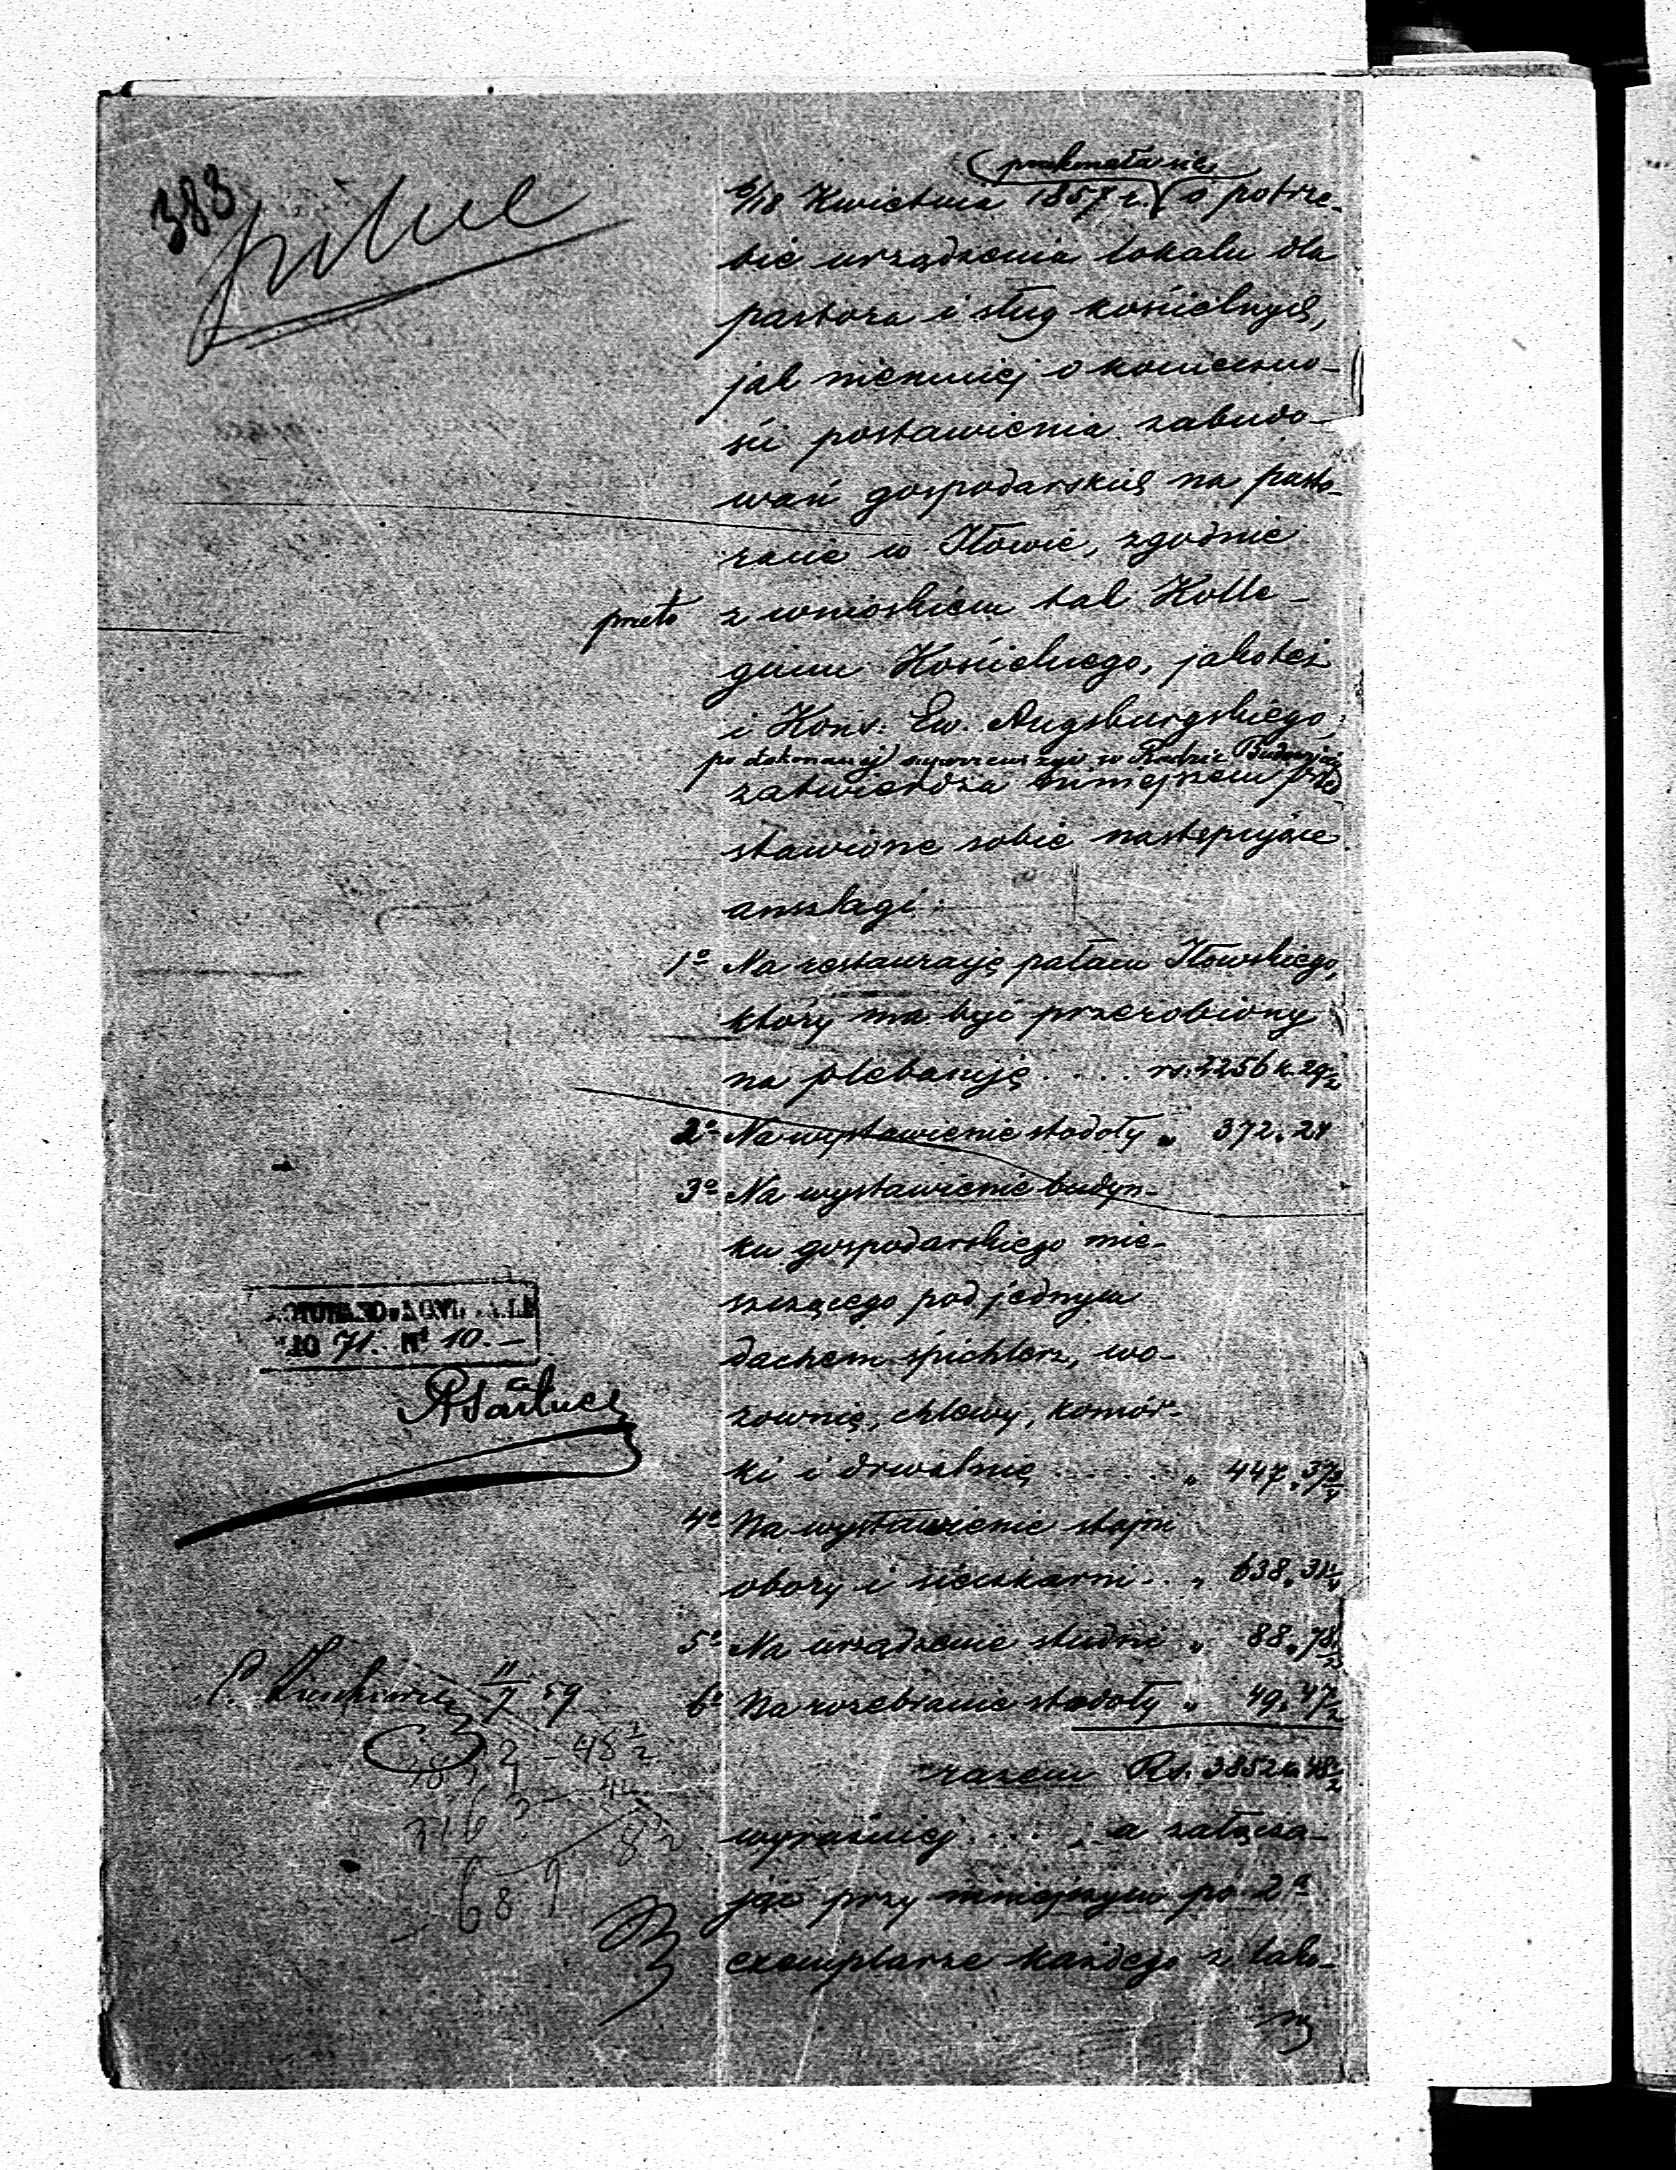 383
pilne
przekonała się
6/18 Kwietnia 1857 r. o potrze-
bie urządzenia lokalu dla
pastora i sług kościelnych,
jak niemniej o konieczno-
ści postawienia zabudo-
wań gospodarskich na pasto-
racie w Iłowie, zgodnie
przeto z wnioskiem tak Kolle-
gium Kościelnego, jakoteż
i Kons: Ew. Augsburgskiego,
po dokonanej superrewizyi w Radzie Budowniczej
zatwierdza niniejszem przed
stawione sobie następujące
anszlagi:
1o Na restauracyę pałacu Iłowskiego,
który ma być przerobiony
na plebaniję .... rs. 2256 k. 29½
2o Na wystawienie stodoły „ 372. 24
3o Na wystawienie budyn-
ku gospodarskiego mie-
szczącego pod jednym
dachem śpichlerz, wo-
zownię, chlewy, komór-
ki i drwalnię ..... „ 447. 37¾
4o Na wystawienie stajni
obory i sieczkarni .. „ 638. 31¼
5o Na urządzenie studni „ 88. 78½
6o Na rozebranie stodoły „ 49. 47½
razem Rs. 3852 k. 48½
wyraźniej .... , a załącza-
jąc przy niniejszym po 2a
exemplarze każdego z tako-
71. No 10.-
P.
11/7 59
48½
689